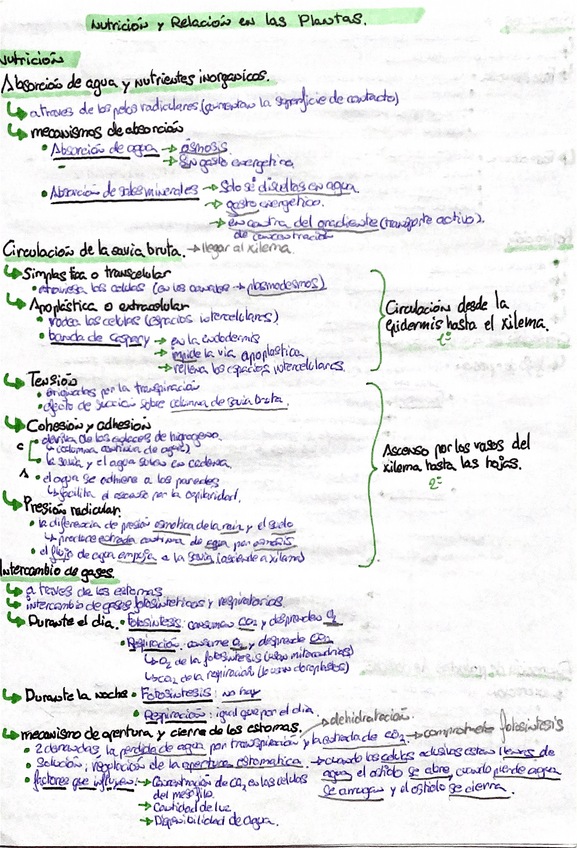 Nutrición y Relación en las Plantas.
Nutrición
Absorción de agua y nutrientes inorganicos.
a traves de los pelos radiculares (aumentan la superficie de contacto)
mecanismos de absorción
• Absorción de agua → ósmosis.
→ sin gasto energetico
• Absorción de sales minerales → Solo si disueltas en agua.
→ gasto energetico.
→ en contra del gradiente (transporte activo).
de concentración
Circulación de la savia bruta. → llegar al xilema.
Simplastica o transcelular
• atraviesa las celulas (en los → plasmodesmos)
Apoplástica o extracelular
• rodea las celulas (espacios intercelulares)
• banda de caspary → en la endodermis
→ impide la via apoplastica
→ rellena los espacios intercelulares.
Circulación desde la
epidermis hasta el xilema.
1º
Tensión
• originada por la transpiración
• efecto de succión sobre columna de savia bruta.
Cohesión y adhesión
C • deriva de los enlaces de hidrogeno.
(columna continua de agua)
• la savia y el agua suben en cadena.
A • el agua se adhiere a las paredes
facilita el ascenso por la capilaridad.
Presión radicular.
• la diferencia de presión osmótica de la raiz y el suelo
produce entrada continua de agua por osmosis
• el flujo de agua empuja a la savia (asciende a xilema)
Ascenso por los vasos del
xilema hasta las hojas.
2º
Intercambio de gases.
a traves de los estomas.
intercambio de gases fotosinteticos y respiratorios
Durante el dia. • Fotosintesis: consumen CO2 y desprenden O2
• Respiración: consume O2 y desprende CO2
O2 de la fotosintesis (usan mitocondrias)
CO2 de la respiración (lo usan cloroplastos)
Durante la noche • Fotosintesis: no hay
• Respiración: igual que por el dia.
mecanismo de apertura y cierre de los estomas. → dehidratación.
• 2 demandas, la perdida de agua por transpiración y la entrada de CO2 → compromete fotosintesis
• Solución: regulación de la apertura estomatica. → cuando las celulas oclusivas estan llenas de
agua el ostiolo se abre, cuando pierde agua
se arrugan y el ostiolo se cierra.
• factores que influyen: → Concentración de CO2 en las celulas
del mesofilo.
→ Cantidad de luz.
→ Disponibilidad de agua.